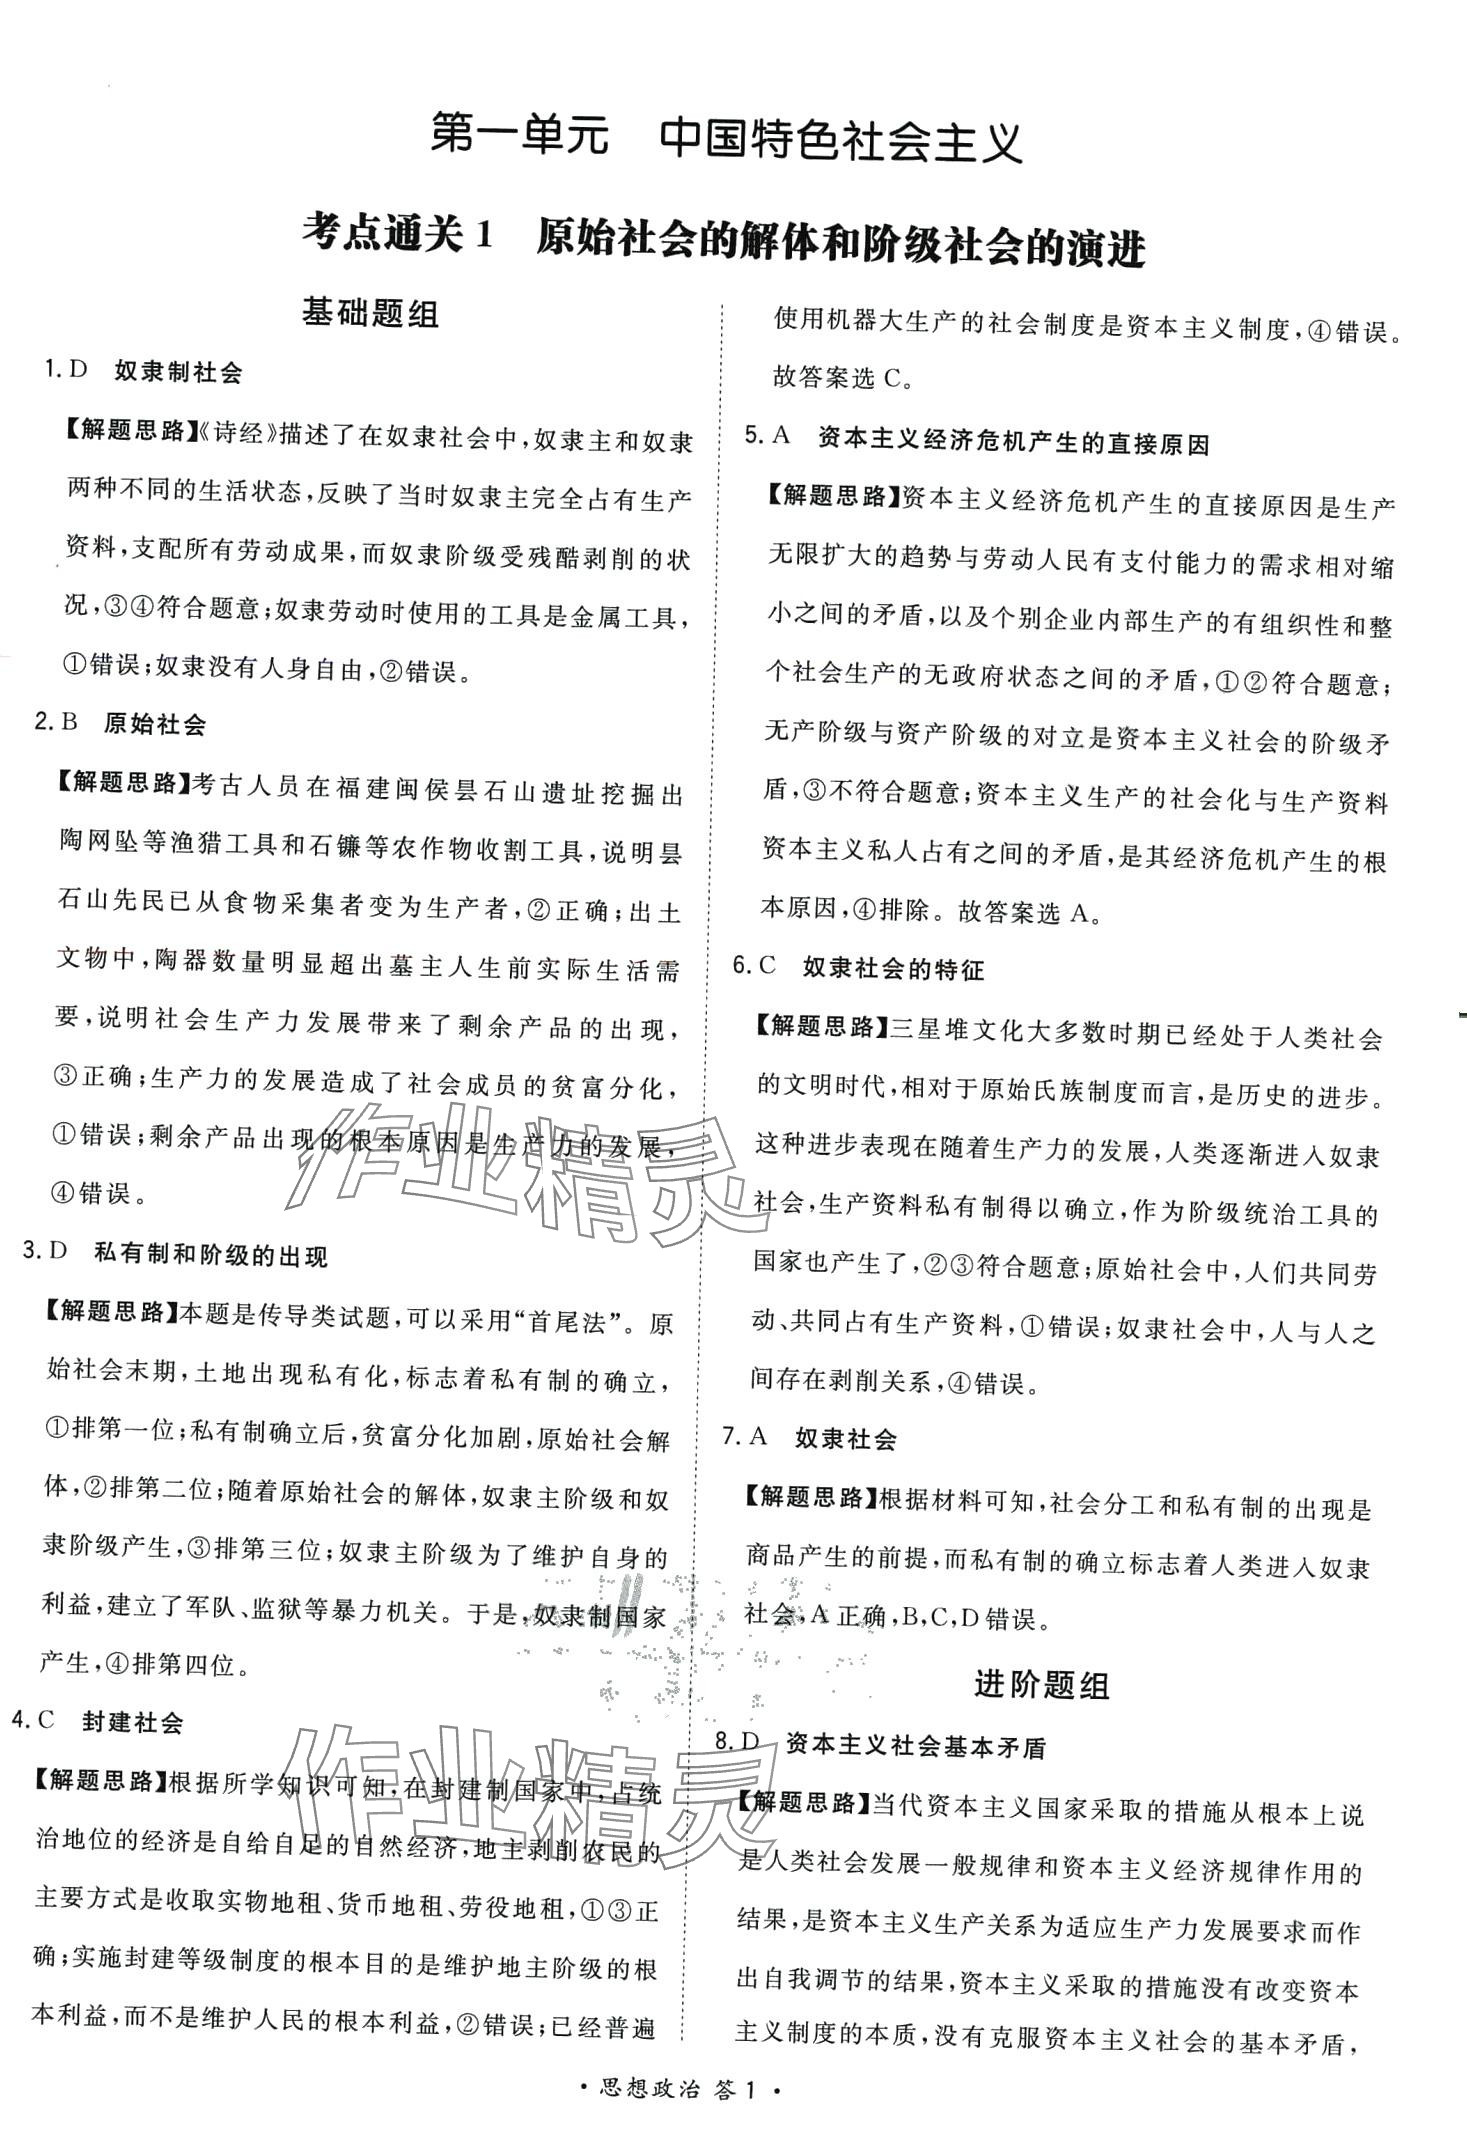 第一单元 中国特色社会主义
考点通关1 原始社会的解体和阶级社会的演进
基础题组
1. D 奴隶制社会
【解题思路】《诗经》描述了在奴隶社会中,奴隶主和奴隶
两种不同的生活状态,反映了当时奴隶主完全占有生产
资料,支配所有劳动成果,而奴隶阶级受残酷剥削的状
况,③④符合题意;奴隶劳动时使用的工具是金属工具,
①错误;奴隶没有人身自由,②错误。
2. B 原始社会
【解题思路】考古人员在福建闽侯昙石山遗址挖掘出
陶网坠等渔猎工具和石镰等农作物收割工具,说明昙
石山先民已从食物采集者变为生产者,②正确;出土
文物中,陶器数量明显超出墓主人生前实际生活需
要,说明社会生产力发展带来了剩余产品的出现,
③正确;生产力的发展造成了社会成员的贫富分化,
①错误;剩余产品出现的根本原因是生产力的发展,
④错误。
3. D 私有制和阶级的出现
【解题思路】本题是传导类试题,可以采用“首尾法”。原
始社会末期,土地出现私有化,标志着私有制的确立,
①排第一位;私有制确立后,贫富分化加剧,原始社会解
体,②排第二位;随着原始社会的解体,奴隶主阶级和奴
隶阶级产生,③排第三位;奴隶主阶级为了维护自身的
利益,建立了军队、监狱等暴力机关。于是,奴隶制国家
产生,④排第四位。
4. C 封建社会
【解题思路】根据所学知识可知,在封建制国家中,占统
治地位的经济是自给自足的自然经济,地主剥削农民的
主要方式是收取实物地租、货币地租、劳役地租,①③正
确;实施封建等级制度的根本目的是维护地主阶级的根
本利益,而不是维护人民的根本利益,②错误;已经普遍
使用机器大生产的社会制度是资本主义制度,④错误。
故答案选C。
5. A 资本主义经济危机产生的直接原因
【解题思路】资本主义经济危机产生的直接原因是生产
无限扩大的趋势与劳动人民有支付能力的需求相对缩
小之间的矛盾,以及个别企业内部生产的有组织性和整
个社会生产的无政府状态之间的矛盾,①②符合题意;
无产阶级与资产阶级的对立是资本主义社会的阶级矛
盾,③不符合题意;资本主义生产的社会化与生产资料
资本主义私人占有之间的矛盾,是其经济危机产生的根
本原因,④排除。故答案选A。
6. C 奴隶社会的特征
【解题思路】三星堆文化大多数时期已经处于人类社会
的文明时代,相对于原始氏族制度而言,是历史的进步。
这种进步表现在随着生产力的发展,人类逐渐进入奴隶
社会,生产资料私有制得以确立,作为阶级统治工具的
国家也产生了,②③符合题意;原始社会中,人们共同劳
动、共同占有生产资料,①错误;奴隶社会中,人与人之
间存在剥削关系,④错误。
7. A 奴隶社会
【解题思路】根据材料可知,社会分工和私有制的出现是
商品产生的前提,而私有制的确立标志着人类进入奴隶
社会,A正确,B,C,D错误。
进阶题组
8. D 资本主义社会基本矛盾
【解题思路】当代资本主义国家采取的措施从根本上说
是人类社会发展一般规律和资本主义经济规律作用的
结果,是资本主义生产关系为适应生产力发展要求而作
出自我调节的结果,资本主义采取的措施没有改变资本
主义制度的本质,没有克服资本主义社会的基本矛盾,
·思想政治 答1·
作业精灵
作业精灵